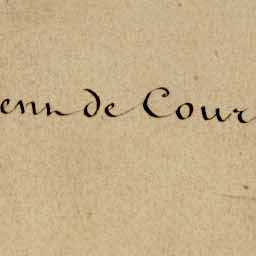 enu de Cour